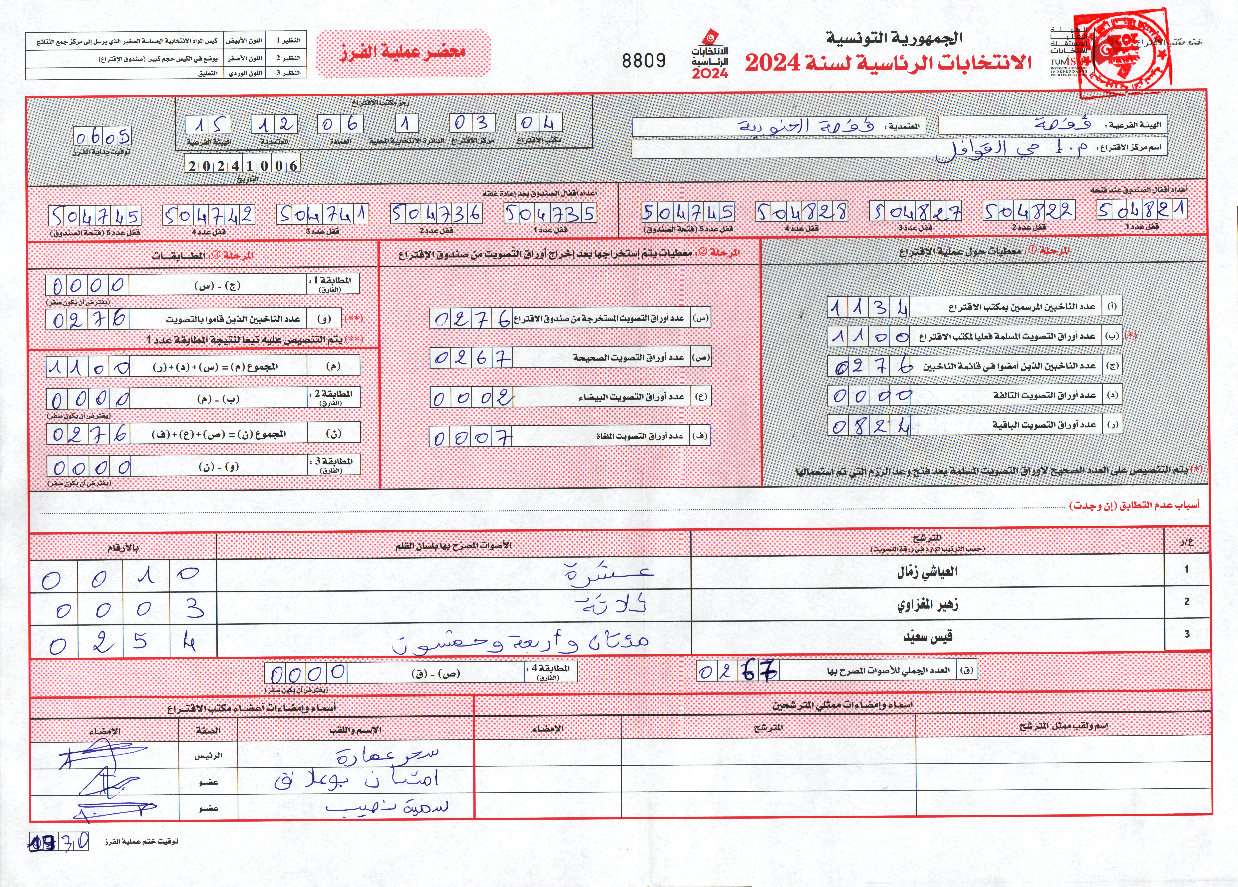 الجمهورية التونسية
الانتخابات الرئاسية لسنة 2024
الانتخابات
الرئاسية
2024
8809
محضر عملية الفرز
النظير 1 اللون الأبيض كيس المواد الانتخابية الحساسة الصغير الذي يرسل إلى مركز جمع النتائج
النظير 2 اللون الأصفر يوضع في الكيس حجم كبير (صندوق الاقتراع)
النظير 3 اللون الوردي التعليق
ختم مكتب الاقتراع
الهيئة الفرعية: قفصة
المعتمدية: قفصة الجنوبية
اسم مركز الاقتراع: م.إ حي القوافل
رمز مكتب الاقتراع
04 03 1 06 12 15
مكتب الاقتراع مركز الاقتراع الدائرة الانتخابية المحلية العمادة المعتمدية الهيئة الفرعية
20241006
التاريخ
0605
توقيت بداية الفرز
أعداد أقفال الصندوق عند فتحه
504821 504822 504827 504828 504745
قفل عدد 1 قفل عدد 2 قفل عدد 3 قفل عدد 4 قفل عدد 5 (فتحة الصندوق)
أعداد أقفال الصندوق بعد إعادة غلقه
504735 504736 504741 504742 504745
قفل عدد 1 قفل عدد 2 قفل عدد 3 قفل عدد 4 قفل عدد 5 (فتحة الصندوق)
المرحلة ①: معطيات حول عملية الاقتراع
(أ) عدد الناخبين المرسمين بمكتب الاقتراع 1134
(*) (ب) عدد أوراق التصويت المسلمة فعليا لمكتب الاقتراع 1100
(ج) عدد الناخبين الذين أمضوا في قائمة الناخبين 0276
(د) عدد أوراق التصويت التالفة 0000
(ر) عدد أوراق التصويت الباقية 0824
(*) يتم التنصيص على العدد الصحيح لأوراق التصويت المسلمة بعد فتح وعد الرزم التي تم استعمالها
المرحلة ②: معطيات يتم إستخراجها بعد إخراج أوراق التصويت من صندوق الاقتراع
(س) عدد أوراق التصويت المستخرجة من صندوق الاقتراع 0276
(ص) عدد أوراق التصويت الصحيحة 0267
(ع) عدد أوراق التصويت البيضاء 0002
(ف) عدد أوراق التصويت الملغاة 0007
المرحلة ③: المطابقات
المطابقة 1: (الفارق) (ج) - (س) 0000
(يفترض أن يكون صفر)
(**) (و) عدد الناخبين الذين قاموا بالتصويت 0276
(**) يتم التنصيص عليه تبعا لنتيجة المطابقة عدد 1
(م) المجموع (م) = (س) + (د) + (ر) 1100
المطابقة 2: (الفارق) (ب) - (م) 0000
(يفترض أن يكون صفر)
(ن) المجموع (ن) = (ص) + (ع) + (ف) 0276
المطابقة 3: (الفارق) (و) - (ن) 0000
(يفترض أن يكون صفر)
أسباب عدم التطابق (إن وجدت)
ع/ر المترشح الأصوات المصرح بها بلسان القلم بالأرقام
(حسب الترتيب الوارد في ورقة التصويت)
1 العياشي زمّال عشرة 0010
2 زهير المغزاوي ثلاثة 0003
3 قيس سعيّد مئتان وأربعة وخمسون 0254
(ق) العدد الجملي للأصوات المصرح بها 0267
المطابقة 4: (الفارق) (ص) - (ق) 0000
(يفترض أن يكون صفر)
أسماء وإمضاءات ممثلي المترشحين
اسم ولقب ممثل المترشح المترشح الامضاء
أسماء وإمضاءات أعضاء مكتب الاقتراع
الإسم واللقب الصفة الامضاء
سحر عمارة الرئيس
امتنان بوعلاق عضو
سمية نصيب عضو
توقيت ختم عملية الفرز 1930